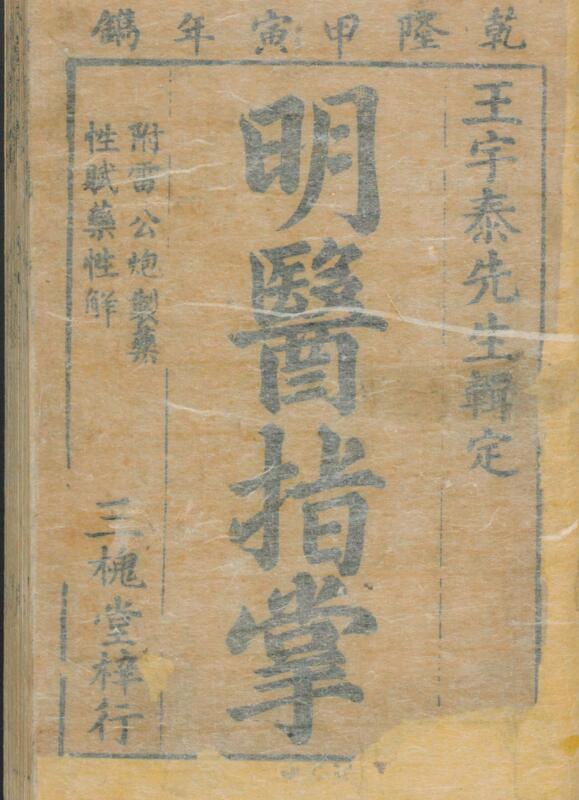 乾隆甲寅年鐫
王宇泰先生輯定
明醫指掌
附雷公炮製藥
性賦藥性解
三槐堂梓行